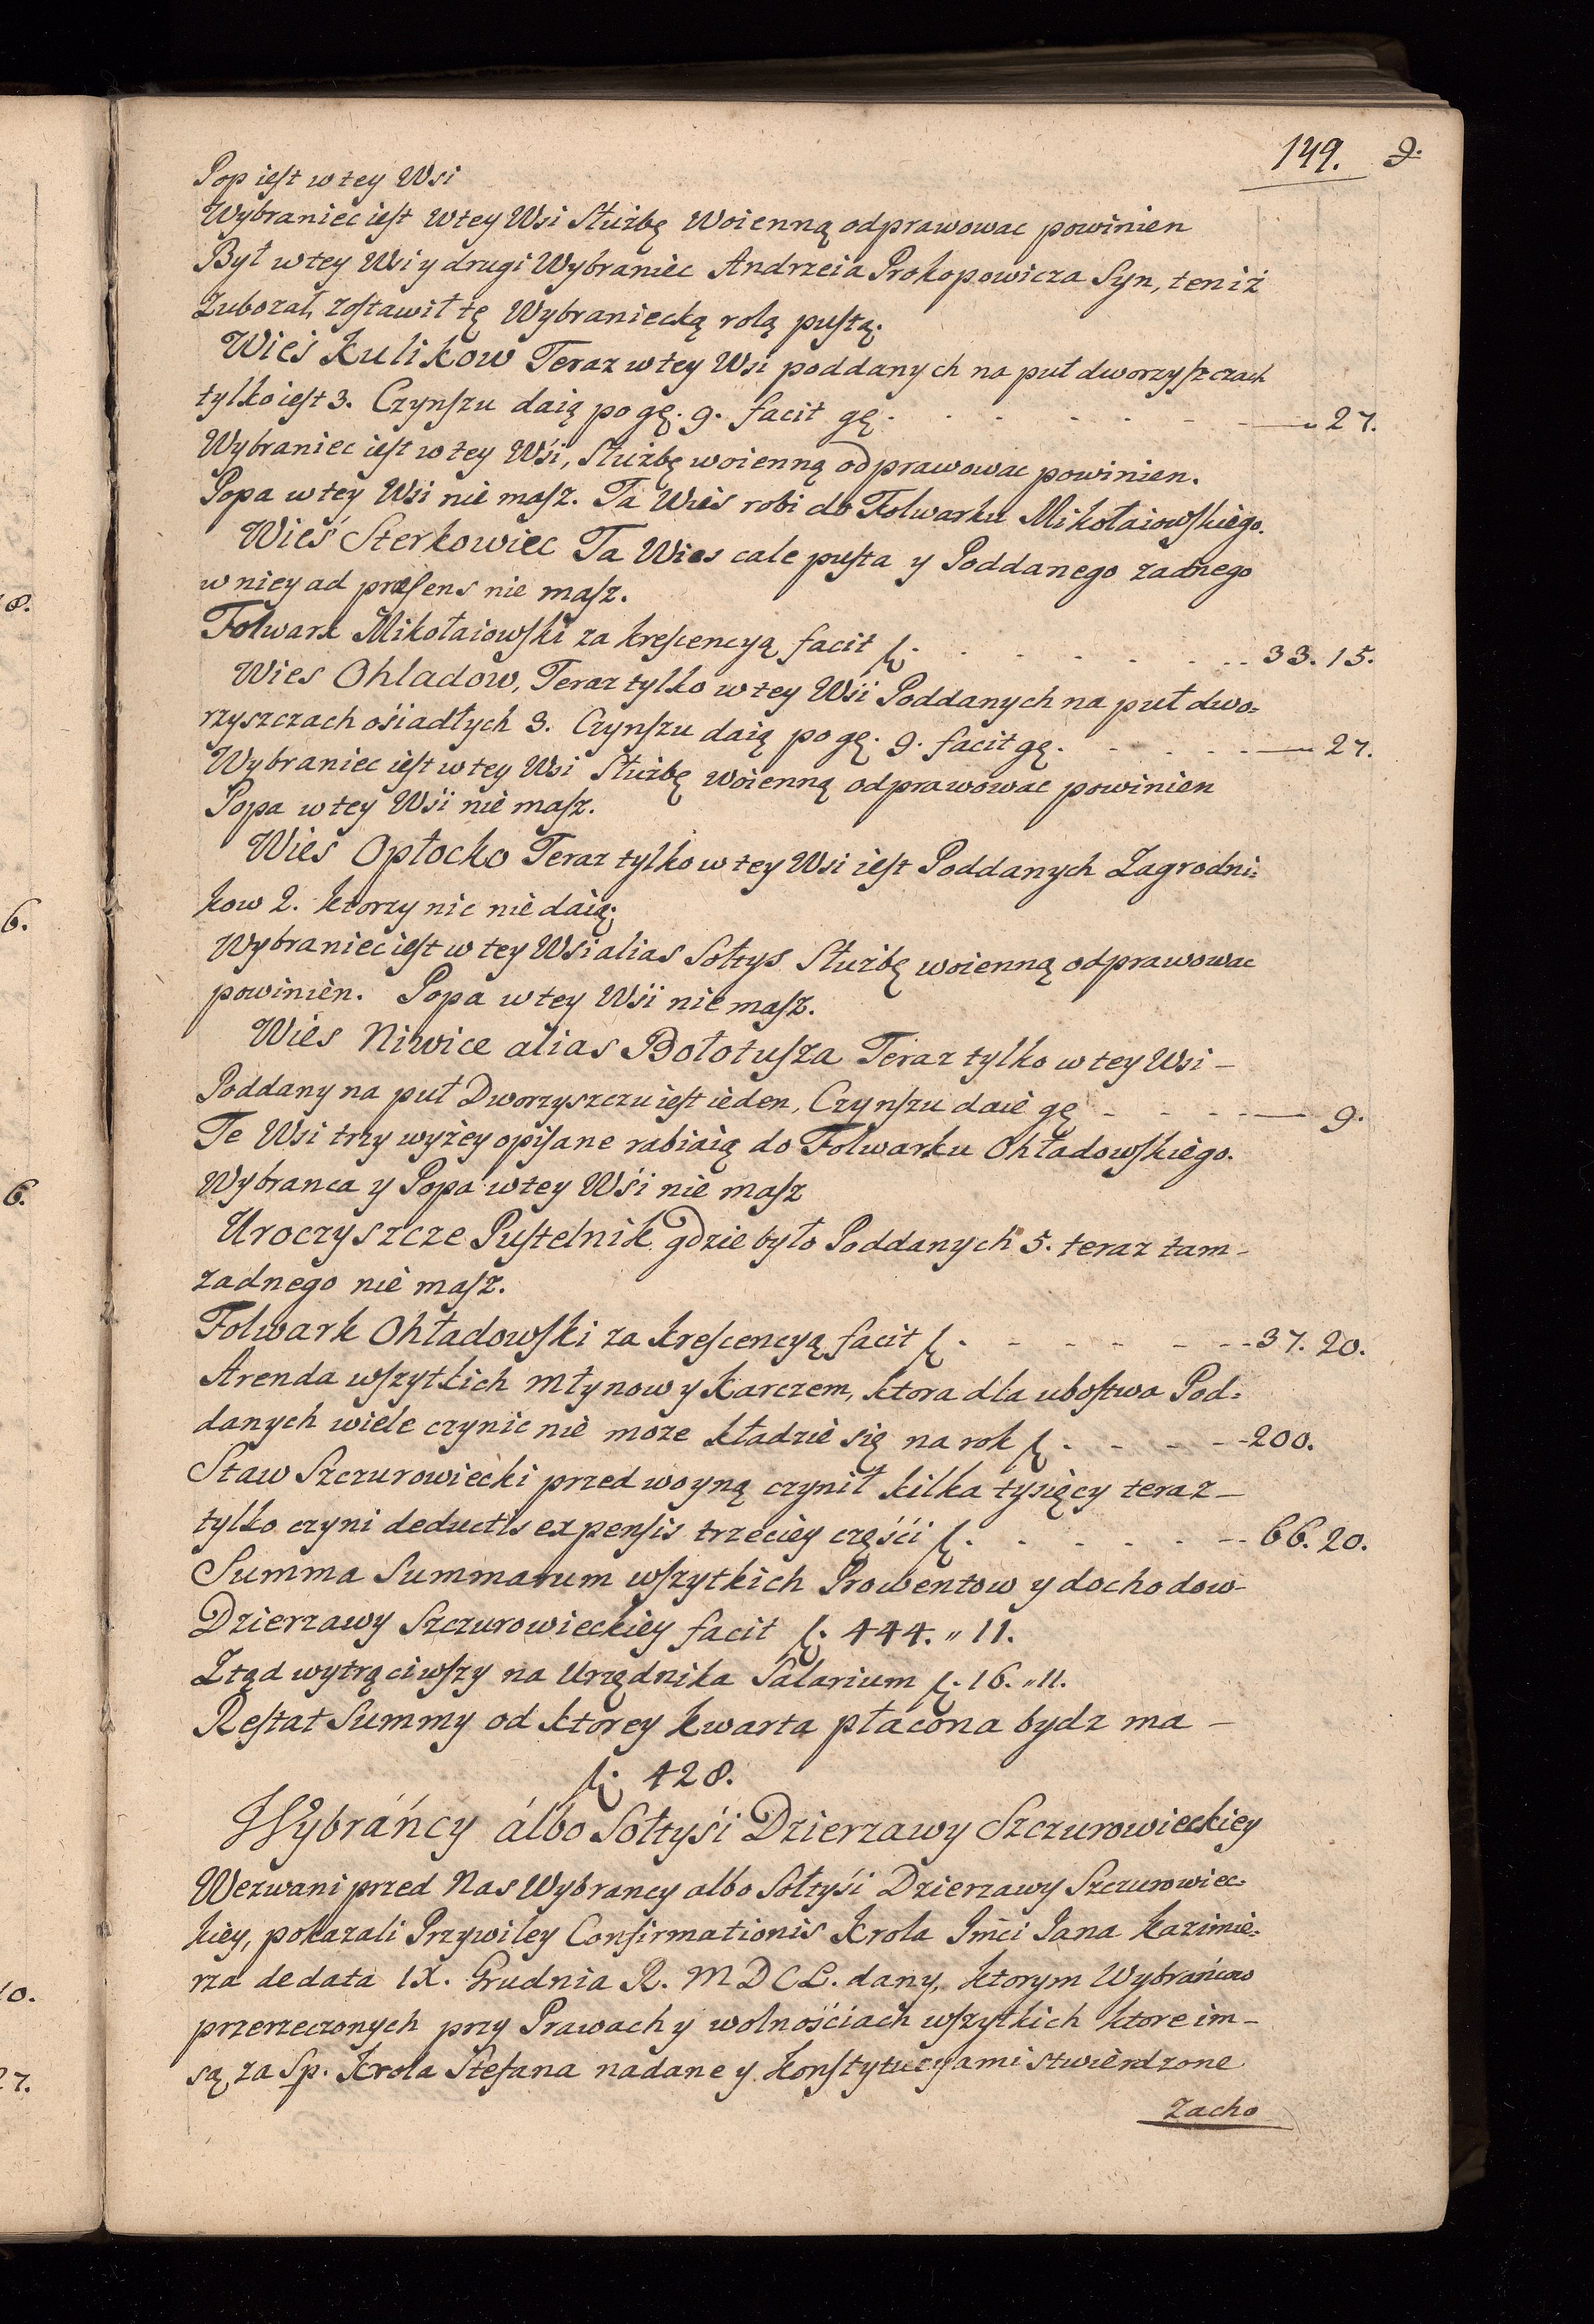 149. 9.
Pop iest w tey Wsi
Wybraniec iest w tey Wsi Służbę Woienną odprawowac powinien
Był w tey Wsi y drugi Wybraniec Andrzeia Prokopowicza Syn, ten iż
Zubozał, zostawił tę Wybraniecką rolą pustą.
Wieś Kulikow Teraz w tey Wsi poddanych na puł dworzyszczach
tylko iest 3. Czynszu daią po gę. 9. facit gę. - - - - - — „ 27.
Wybraniec iest w tey Wśi, Służbę woienną odprawowac powinien.
Popa w tey Wsi nie masz. Ta Wieś robi do Folwarku Mikołaiowskiego.
Wieś Sterkowiec Ta Wies cale pusta y Poddanego zadnego
w niey ad præsens nie masz.
Folwark Mikołaiowski za krescencyą facit f. - - - - - - 33. 15.
Wies Ohladow, Teraz tylko w tey Wśi Poddanych na puł dwo=
rzyszczach ośiadłych 3. Czynszu daią po gę. 9. facit gę. - - - - — 27.
Wybraniec iest w tey Wsi Służbę woienną odprawowac powinien
Popa w tey Wśi nie masz.
Wies Opłocko Teraz tylko w tey Wsi iest Poddanych Zagrodni=
kow 2. ktorzy nic nie daią.
Wybraniec iest w tey Wsi alias Sołtys Służbę woienną odprawowac
powinien. Popa w tey Wśi nie masz.
Wies Niwice alias Bołotusza Teraz tylko w tey Wsi -
Poddany na puł Dworzyszczu iest ieden, Czynszu daie gę - - - - — 9.
Te Wsi trzy wyżey opisane rabiaią do Folwarku Ohładowskiego.
Wybranca y Popa w tey Wśi nie masz
Uroczyszcze Pustelnik gdzie było Poddanych 5. teraz tam -
zadnego nie masz.
Folwark Ohładowski za krescencyą facit f. - - - - - - 37. 20.
Arenda wszytkich młynow y karczem, ktora dla ubostwa Pod=
danych wiele czynic nie może kładzie się na rok f. - - - - 200.
Staw Szczurowiecki przed woyną czynił kilka tysięcy teraz -
tylko czyni deductis expensis trzeciey częśći f. - - - - - 66. 20.
Summa Summarum wszytkich Prowentow y dochodow -
Dzierzawy Szczurowieckiey facit f. 444. „ 11.
Ztąd wytrąciwszy na Urzędnika Salarium f. 16. „ 11.
Restat Summy od ktorey kwarta płacona bydz ma -
f. 428.
Wybráńcy álbo Sołtyśi Dzierzawy Szczurowieckiey
Wezwani przed Nas Wybrancy albo Sołtyśi Dzierzawy Szczurowiec=
kiey, pokazali Przywiley Confirmationis Krola Jmći Jana Kazimie=
rza de data IX. Grudnia R. MDCL. dany, ktorym Wybrańcow
przerzeczonych przy Prawach y wolnościach wszytkich ktore im -
są, za Sp. Krola Stefana nadane y konstytucyami stwierdzone
Zacho
8.
6.
6.
10.
27.